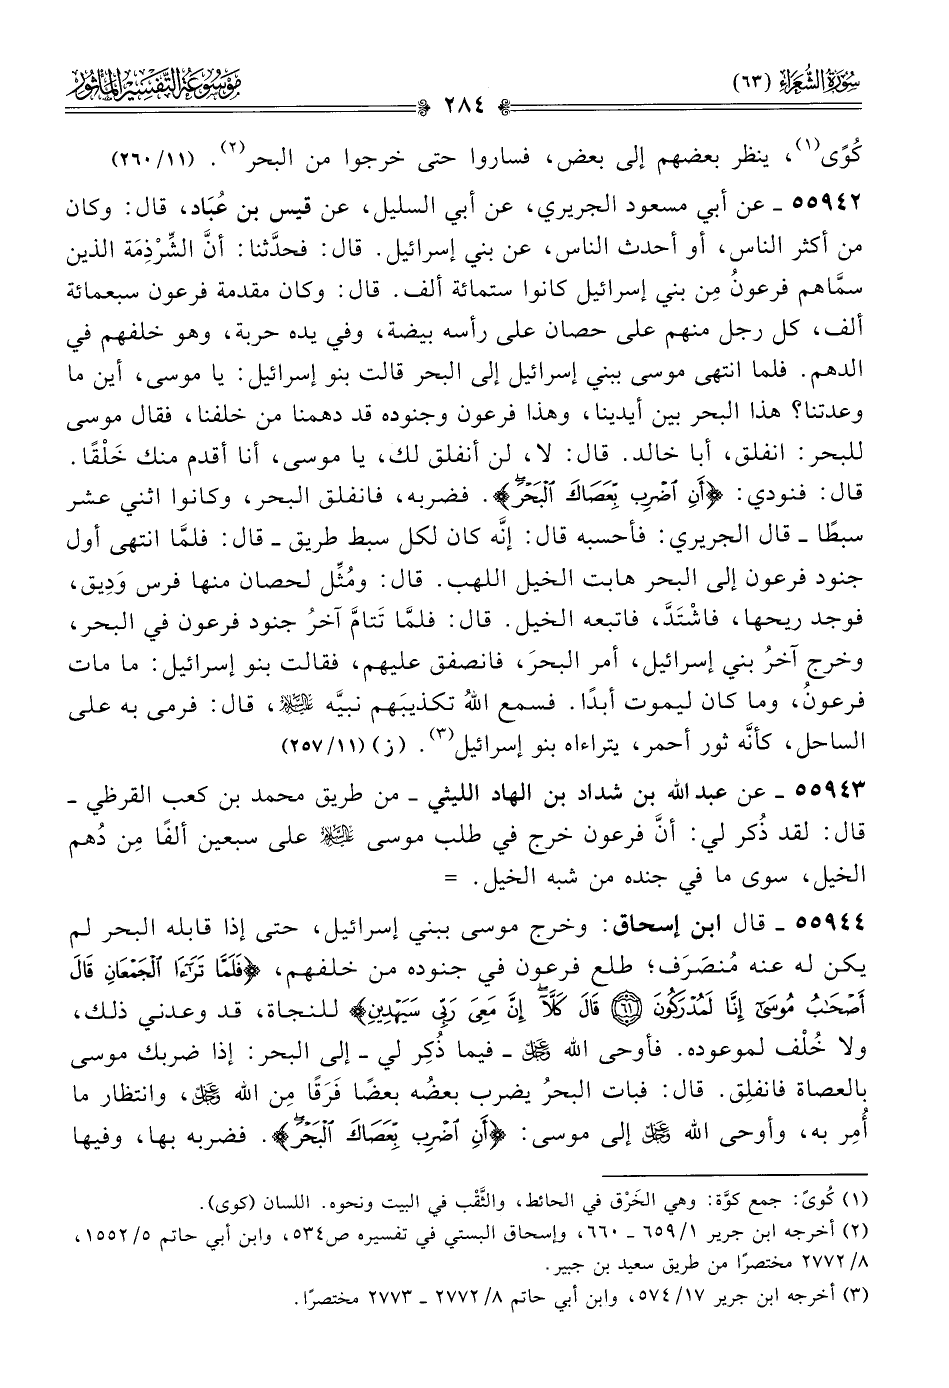 سُورَةُ الشُّعَرَاءِ (٦٣)
٢٨٤
مَوْسُوعَةُ التَّفْسِيرِ المَأْثُورِ
كُوًى(١)، ينظر بعضهم إلى بعض، فساروا حتى خرجوا من البحر(٢). (٢٦٠/١١)
٥٥٩٤٢ ـ عن أبي مسعود الجريري، عن أبي السليل، عن قيس بن عُبَاد، قال: وكان
من أكثر الناس، أو أحدث الناس، عن بني إسرائيل. قال: فحدَّثنا: أنَّ الشِّرْذِمَة الذين
سمَّاهم فرعونُ مِن بني إسرائيل كانوا ستمائة ألف. قال: وكان مقدمة فرعون سبعمائة
ألف، كل رجل منهم على حصان على رأسه بيضة، وفي يده حربة، وهو خلفهم في
الدهم. فلما انتهى موسى ببني إسرائيل إلى البحر قالت بنو إسرائيل: يا موسى، أين ما
وعدتنا؟ هذا البحر بين أيدينا، وهذا فرعون وجنوده قد دهمنا من خلفنا، فقال موسى
للبحر: انفلق، أبا خالد. قال: لا، لن أنفلق لك، يا موسى، أنا أقدم منك خَلْقًا.
قال: فنودي: ﴿أَنِ ٱضْرِب بِّعَصَاكَ ٱلْبَحْرَۖ﴾. فضربه، فانفلق البحر، وكانوا اثني عشر
سبطًا ـ قال الجريري: فأحسبه قال: إنَّه كان لكل سبط طريق ـ قال: فلمَّا انتهى أول
جنود فرعون إلى البحر هابت الخيل اللهب. قال: ومُثِّل لحصان منها فرس وَدِيق،
فوجد ريحها، فاشْتَدَّ، فاتبعه الخيل. قال: فلمَّا تَتامَّ آخرُ جنود فرعون في البحر،
وخرج آخرُ بني إسرائيل، أمر البحرَ، فانصفق عليهم، فقالت بنو إسرائيل: ما مات
فرعونُ، وما كان ليموت أبدًا. فسمع اللهُ تكذيبَهم نبيَّه عليه السلام، قال: فرمى به على
الساحل، كأنَّه ثور أحمر، يتراءاه بنو إسرائيل(٣). (ز) (٢٥٧/١١)
٥٥٩٤٣ ـ عن عبد الله بن شداد بن الهاد الليثي ـ من طريق محمد بن كعب القرظي ـ
قال: لقد ذُكر لي: أنَّ فرعون خرج في طلب موسى عليه السلام على سبعين ألفًا مِن دُهم
الخيل، سوى ما في جنده من شبه الخيل. =
٥٥٩٤٤ ـ قال ابن إسحاق: وخرج موسى ببني إسرائيل، حتى إذا قابله البحر لم
يكن له عنه مُنصَرَف؛ طلع فرعون في جنوده من خلفهم، ﴿فَلَمَّا تَرَٰٓءَا ٱلْجَمْعَانِ قَالَ
أَصْحَٰبُ مُوسَىٰٓ إِنَّا لَمُدْرَكُونَ ٦١ قَالَ كَلَّآۖ إِنَّ مَعِىَ رَبِّى سَيَهْدِينِ﴾ للنجاة، قد وعدني ذلك،
ولا خُلْف لموعوده. فأوحى الله عز وجل ـ فيما ذُكِر لي ـ إلى البحر: إذا ضربك موسى
بالعصاة فانفلِق. قال: فبات البحرُ يضرب بعضُه بعضًا فَرَقًا مِن الله عز وجل، وانتظار ما
أُمِر به، وأوحى الله عز وجل إلى موسى: ﴿أَنِ ٱضْرِب بِّعَصَاكَ ٱلْبَحْرَۖ﴾. فضربه بها، وفيها
(١) كُوىً: جمع كوَّة: وهي الخَرْق في الحائط، والثَّقْب في البيت ونحوه. اللسان (كوى).
(٢) أخرجه ابن جرير ٦٥٩/١ ـ ٦٦٠، وإسحاق البستي في تفسيره ص٥٣٤، وابن أبي حاتم ١٥٥٢/٥،
٢٧٧٢/٨ مختصرًا من طريق سعيد بن جبير.
(٣) أخرجه ابن جرير ٥٧٤/١٧، وابن أبي حاتم ٢٧٧٢/٨ ـ ٢٧٧٣ مختصرًا.